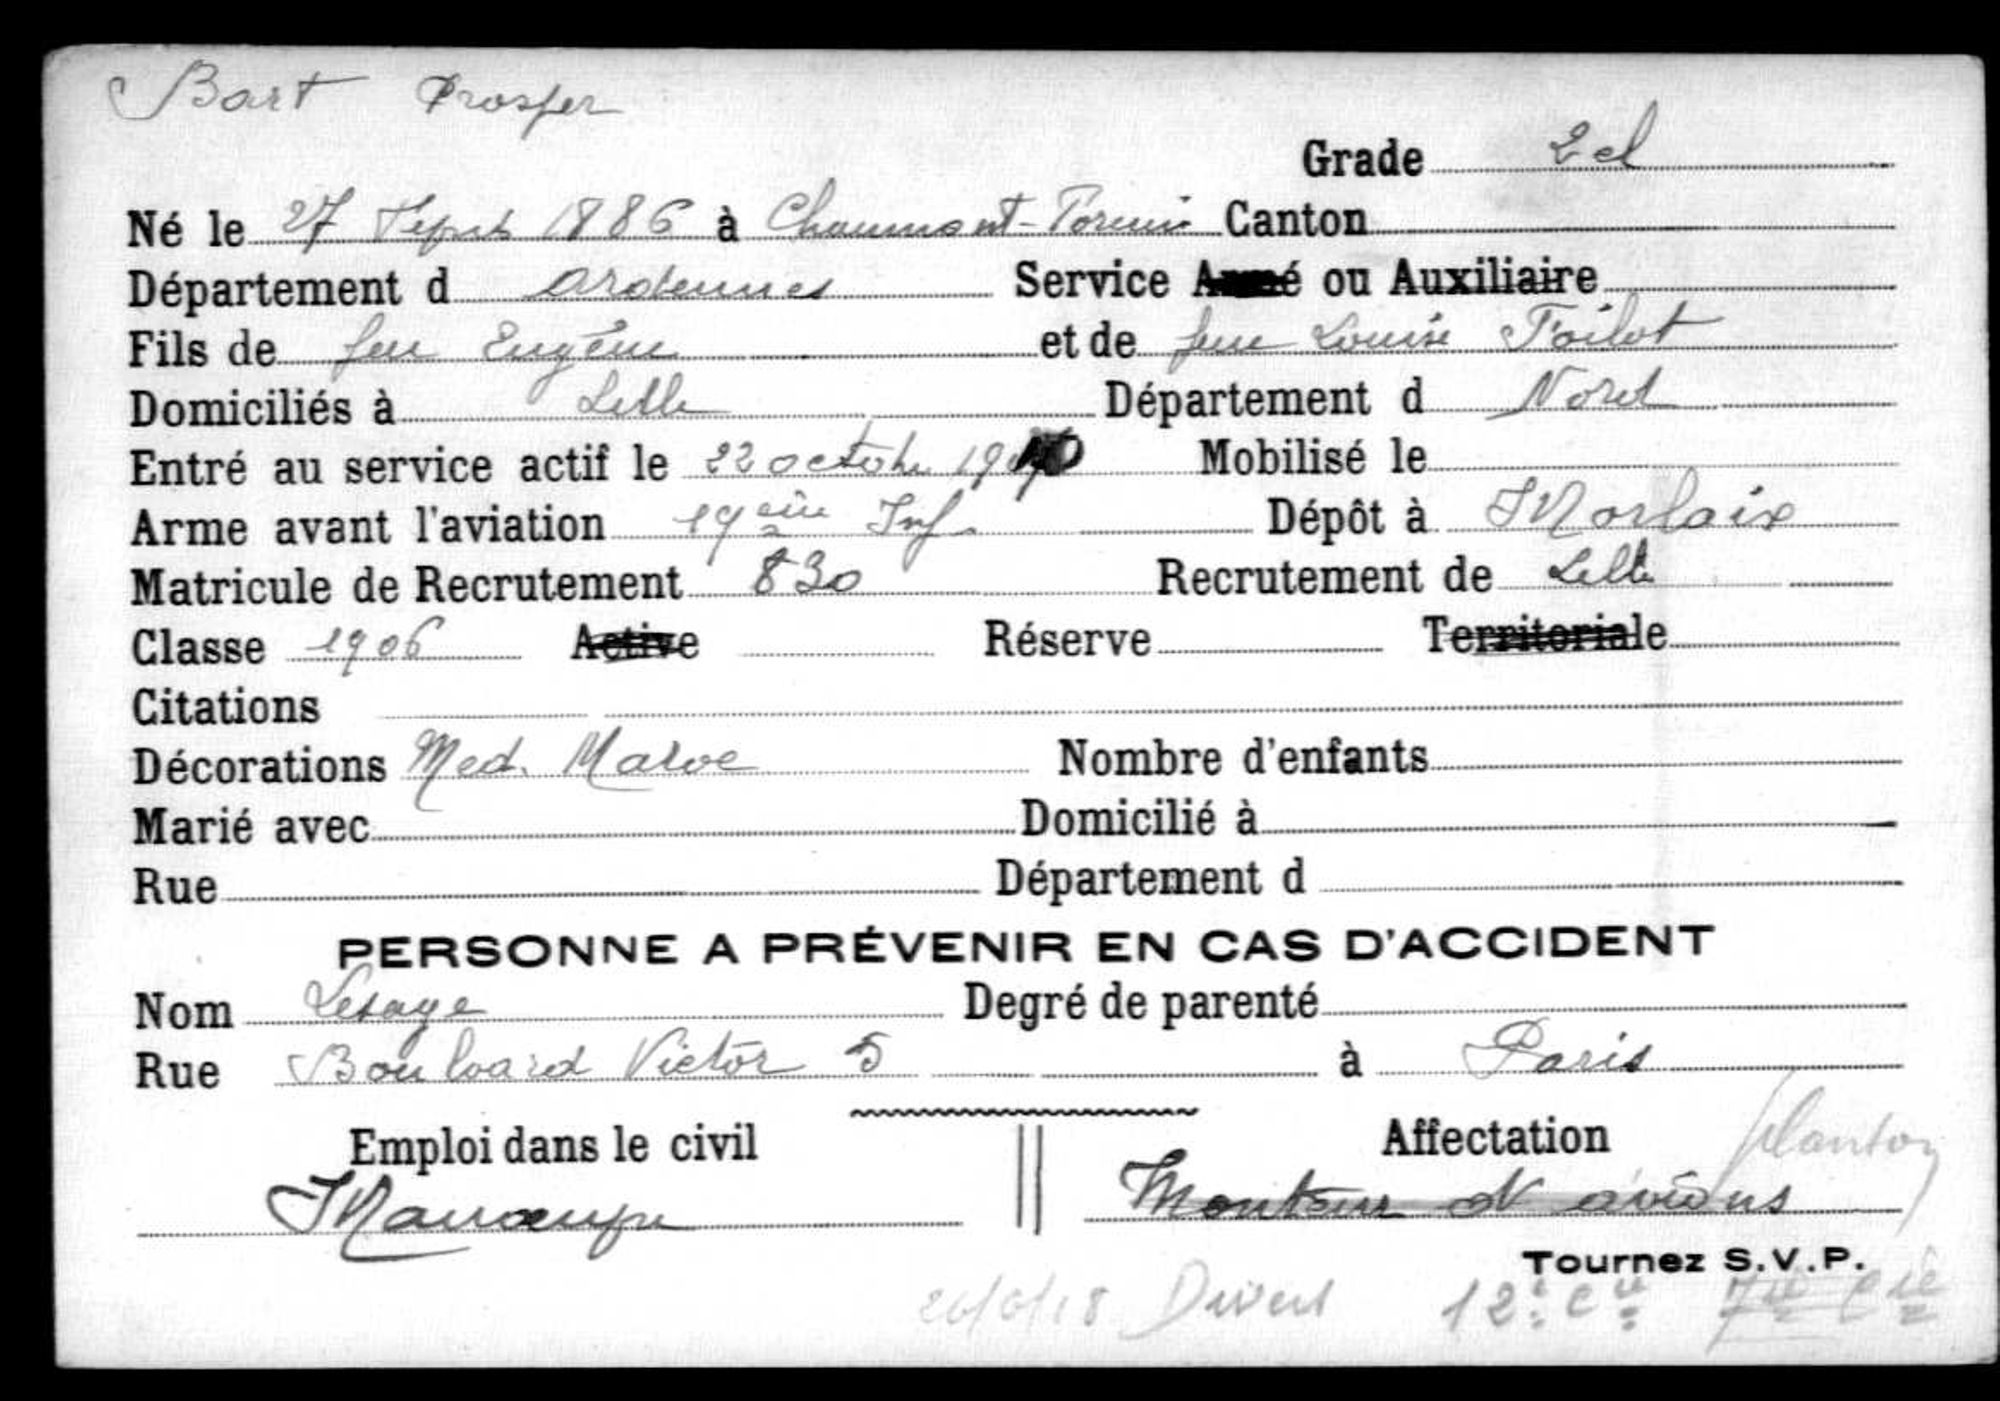 Bart Prosper
Grade 2 cl
Né le 27 Septb 1886 à Chaumont-Porcien Canton
Département d Ardennes Service Armé ou Auxiliaire
Fils de feu Eugène et de feue Louise Toilot
Domiciliés à Lille Département d Nord
Entré au service actif le 22 octobre 19 Mobilisé le
Arme avant l'aviation 19ème Inf. Dépôt à Morlaix
Matricule de Recrutement 830 Recrutement de Lille
Classe 1906 Active Réserve Territoriale
Citations
Décorations Med. Maroc Nombre d'enfants
Marié avec Domicilié à
Rue Département d
PERSONNE A PRÉVENIR EN CAS D'ACCIDENT
Nom Lesage Degré de parenté
Rue Boulvard Victor 5 à Paris
Emploi dans le civil Affectation planton
Manœuvre Monteur d'avions
Tournez S.V.P.
Divers 12e Cie 7e Cie